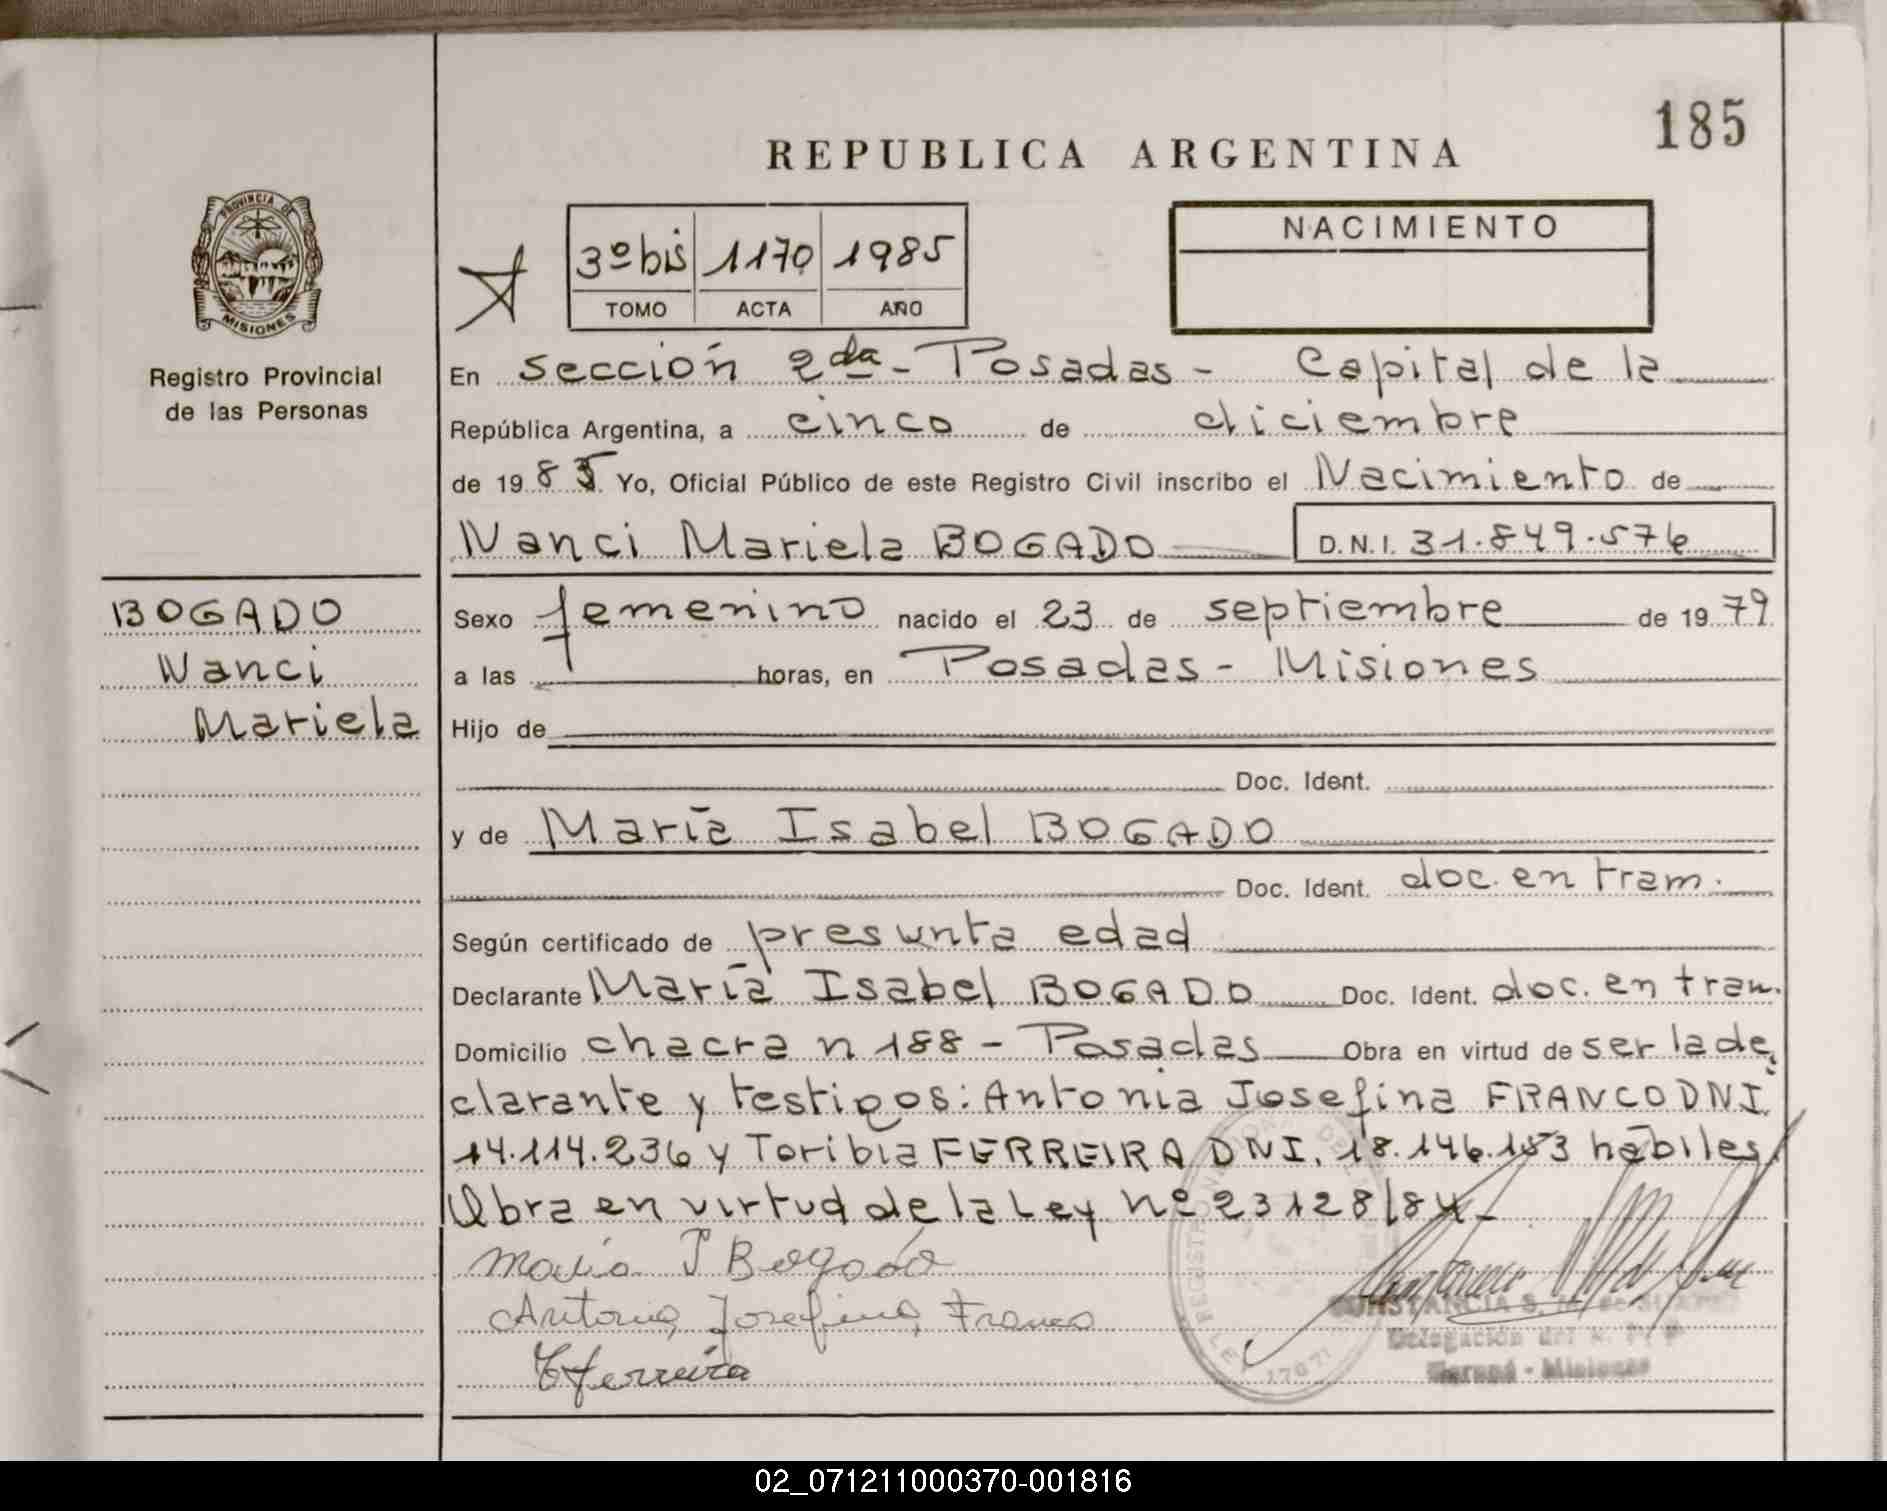 185
REPUBLICA ARGENTINA
PROVINCIA DE
MISIONES
Registro Provincial
de las Personas
3º bis 1170 1985
TOMO ACTA AÑO
NACIMIENTO
En sección 2da - Posadas - Capital de la
República Argentina, a cinco de diciembre
de 1985 Yo, Oficial Público de este Registro Civil inscribo el Nacimiento de
Nanci Mariela BOGADO D.N.I. 31.849.576
BOGADO
Nanci
Mariela
Sexo femenino nacido el 23 de septiembre de 1979
a las horas, en Posadas - Misiones
Hijo de
Doc. Ident.
y de María Isabel BOGADO
Doc. Ident. doc. en tram.
Según certificado de presunta edad
Declarante María Isabel BOGADO Doc. Ident. doc. en tram.
Domicilio chacra n 188 - Posadas Obra en virtud de ser la de
clarante y testigos: Antonia Josefina FRANCO DNI
14.114.236 y Toribia FERREIRA DNI. 18.146.153 hábiles.
Obra en virtud de la Ley Nº 23128/84 -
María I Bogado
Antonia Josefina Franco
T Ferreira
LEY 17671
CONSTANCIA S.
Delegación del
- Misiones
02_071211000370-001816